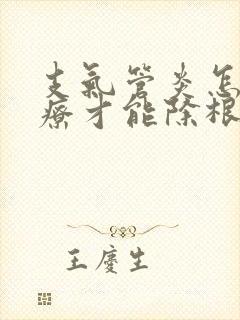 支氣管炎怎
療才能除根
王慶生